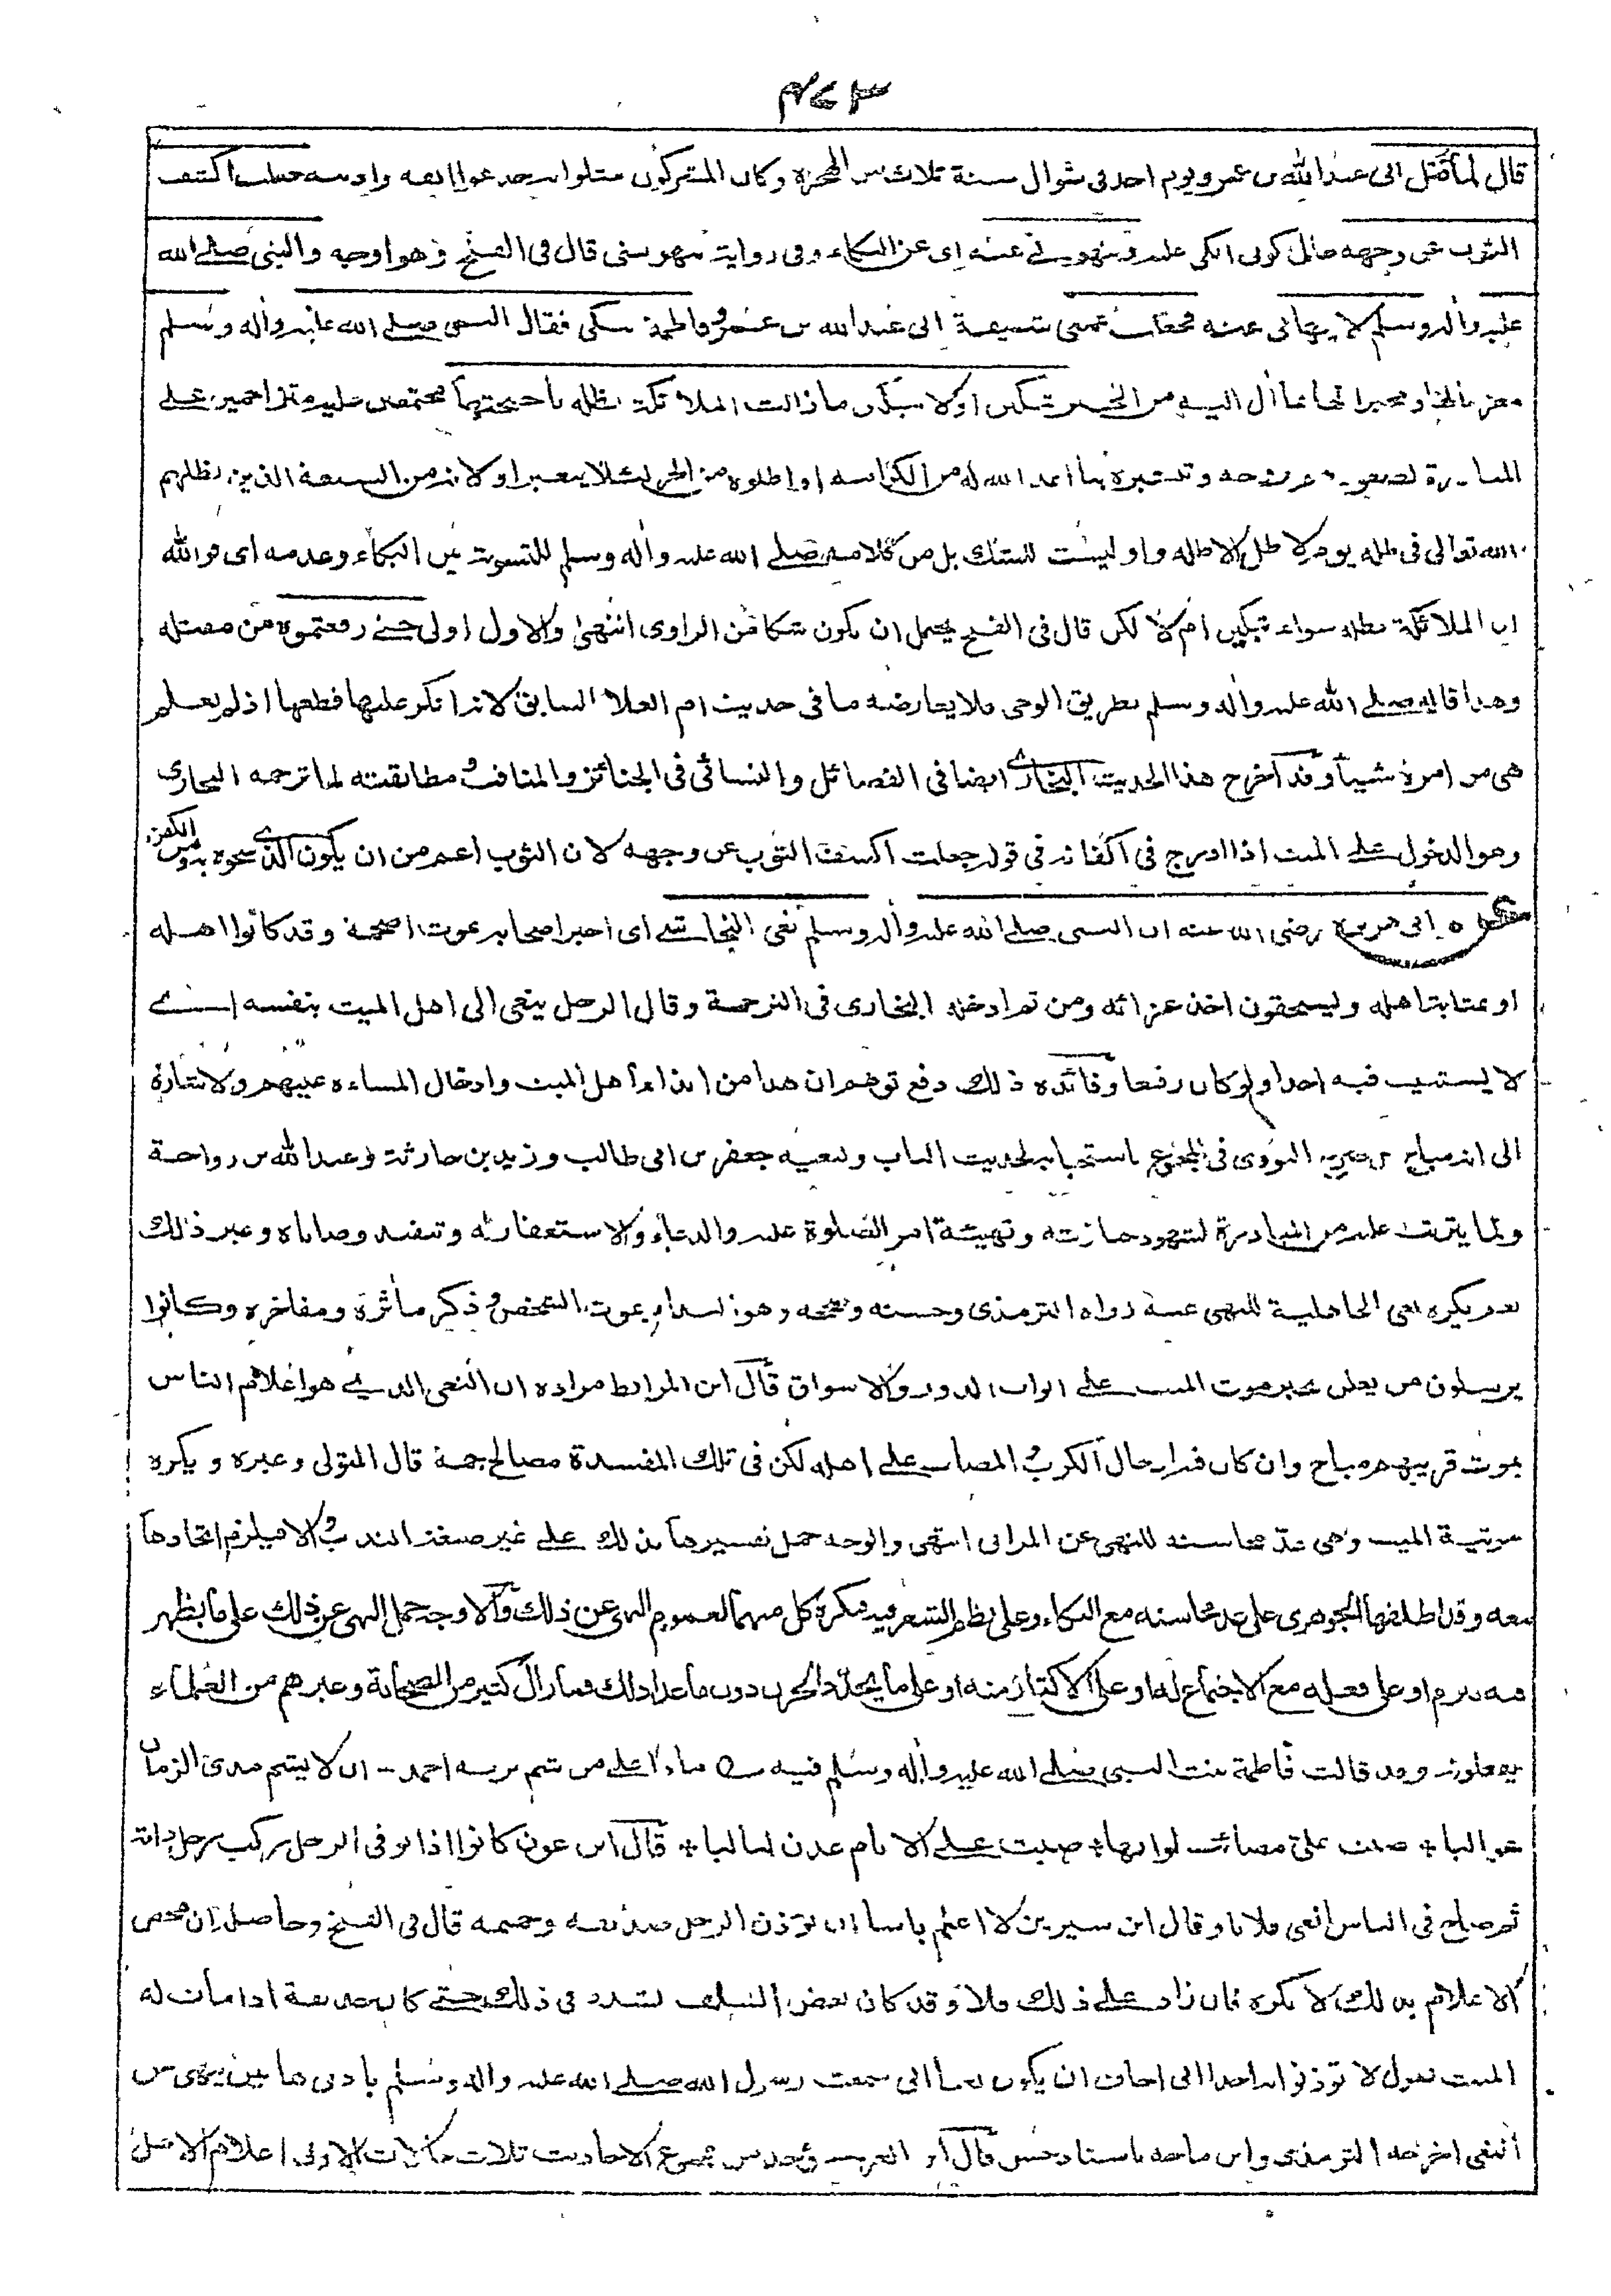 ٤٧٣
قال لما قتل ابى عبد الله بن عمرو يوم احد فى شوال سنة ثلاث من الهجرة وكان المشركون مثلوا به جدعوا انفه واذنيه جعلت اكشف
الثوب عن وجهه حال كونى ابكى عليه وينهونى عنه اى عن البكاء وفى رواية ينهونى قال فى الفتح وهو اوجه والنبى صلى الله
عليه وأله وسلم لا ينهانى عنه فجعلت عمتى شقيقة ابى عبد الله بن عمرو فاطمة تبكى فقال النبى صلى الله عليه وأله وسلم
معزيا لها ومخبرا لها بما أل اليه من الخير تبكين او لا تبكين ما زالت الملائكة تظله باجنحتها مجتمعين عليه متزاحمين على
المبادرة لصعود روحه وتبشيره بما اعد الله له من الكرامة او اظلوه من الحر لئلا يتغير او لانه من السبعة الذين يظلهم
الله تعالى فى ظله يوم لا ظل الا ظله واو ليست للشك بل من كلامه صلى الله عليه وأله وسلم للتسوية بين البكاء وعدمه اى فوالله
ان الملائكة تظله سواء تبكين ام لا لكن قال فى الفتح يحتمل ان يكون شكا من الراوى انتهى والاول اولى حتى رفعتموه من مقتله
وهذا قاله صلى الله عليه وأله وسلم بطريق الوحى فلا يعارضه ما فى حديث ام العلا السابق لانه انكر عليها قطعها اذ لم تعلم
هى من امره شيئا وقد اخرج هذا الحديث البخارى ايضا فى الفضائل والنسائى فى الجنائز والمناقب ومطابقته لما ترجمه البخارى
وهو الدخول على الميت اذا ادرج فى اكفانه فى قوله جعلت اكشف الثوب عن وجهه لان الثوب اعم من ان يكون الذى سجوه به ومن الكفن
عن ابى هريرة رضى الله عنه ان النبى صلى الله عليه وأله وسلم نعى النجاشى اى اخبر اصحابه بموت اصحمة وقد كانوا اهله
او بمثابة اهله ويستحقون اخذ عزائه ومن ثم ادخله البخارى فى الترجمة وقال الرجل ينعى الى اهل الميت بنفسه اى
لا يستنيب فيه احدا ولو كان رفيعا وفائدة ذلك دفع توهم ان هذا من ايذاء اهل الميت وادخال المساءة عليهم والاشارة
الى انه مباح بل صرح النووى فى المجموع باستحبابه لحديث الباب ولنعيه جعفر بن ابى طالب وزيد بن حارثة وعبد الله بن رواحة
ولما يترتب عليه من المبادرة لشهود جنازته وتهيئة امر الصلوة عليه والدعاء والاستغفار له وتنفيذ وصاياه وغير ذلك
نعم يكره نعى الجاهلية للنهى عنه رواه الترمذى وحسنه وصححه وهو النداء بموت الشخص وذكر مأثره ومفاخره وكانوا
يرسلون من يعلن بخبر موت الميت على ابواب الدور والاسواق قال ابن المرابط مراده ان النعى الذى هو اعلام الناس
بموت قريبهم مباح وان كان فيه ادخال الكرب والمصاب على اهله لكن فى تلك المفسدة مصالح جمة قال المتولى وغيره ويكره
مرثية الميت وهى عد محاسنه للنهى عن المراثى انتهى والوجه حمل تفسيرها بذلك على غير صيغة الندب والا فيلزم اتحادها
معه وقد اطلقها الجوهرى على عد محاسنه مع البكاء وعلى نظم الشعر فيه فيكره كل منهما لعموم النهى عن ذلك والاوجه حمل النهى عن ذلك على ما يظهر
فيه تبرم او على فعله مع الاجتماع له او على الاكثار منه او على ما يجدد الحزن دون ما عدا ذلك فما زال كثير من الصحابة وغيرهم من العلماء
يفعلونه وقد قالت فاطمة بنت النبى صلى الله عليه وأله وسلم فيه ماذا على من شم تربة احمد - ان لا يشم مدى الزمان
غواليا * صبت على مصائب لو انها * صبت على الايام عدن لياليا * قال ابن عون كانوا اذا توفى الرجل ركب رجل دابة
ثم صاح فى الناس انعى فلانا وقال ابن سيرين لا اعلم باسا ان يؤذن الرجل صديقه وحميمه قال فى الفتح وحاصله ان محض
الاعلام بذلك لا يكره فان زاد على ذلك فلا وقد كان بعض السلف يشدد فى ذلك حتى كان حذيفة اذا مات له
الميت يقول لا تؤذنوا به احدا انى اخاف ان يكون نعيا انى سمعت رسول الله صلى الله عليه وأله وسلم باذنى هاتين ينهى عن
النعى اخرجه الترمذى وابن ماجه باسناد حسن قال ابن العربى يؤخذ من مجموع الاحاديث ثلاث حالات الاولى اعلام الاهل